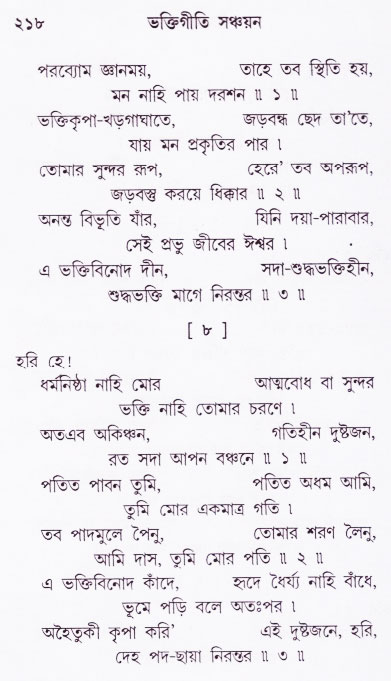 ২১৮ ভক্তিগীতি সঞ্চয়ন
পরব্যোম জ্ঞানময়, তাহে তব স্থিতি হয়,
মন নাহি পায় দরশন ॥ ১ ॥
ভক্তিকৃপা-খড়গাঘাতে, জড়বন্ধ ছেদ তা'তে,
যায় মন প্রকৃতির পার ।
তোমার সুন্দর রূপ, হেরে' তব অপরূপ,
জড়বস্তু করয়ে ধিক্কার ॥ ২ ॥
অনন্ত বিভূতি যাঁর, যিনি দয়া-পারাবার,
সেই প্রভু জীবের ঈশ্বর ।
এ ভক্তিবিনোদ দীন, সদা-শুদ্ধভক্তিহীন,
শুদ্ধভক্তি মাগে নিরন্তর ॥ ৩ ॥
[ ৮ ]
হরি হে!
ধর্মনিষ্ঠা নাহি মোর আত্মবোধ বা সুন্দর
ভক্তি নাহি তোমার চরণে ।
অতএব অকিঞ্চন, গতিহীন দুষ্টজন,
রত সদা আপন বঞ্চনে ॥ ১ ॥
পতিত পাবন তুমি, পতিত অধম আমি,
তুমি মোর একমাত্র গতি ।
তব পাদমুলে পৈনু, তোমার শরণ লৈনু,
আমি দাস, তুমি মোর পতি ॥ ২ ॥
এ ভক্তিবিনোদ কাঁদে, হৃদে ধৈর্য্য নাহি বাঁধে,
ভূমে পড়ি বলে অতঃপর ।
অহৈতুকী কৃপা করি' এই দুষ্টজনে, হরি,
দেহ পদ-ছায়া নিরন্তর ॥ ৩ ॥